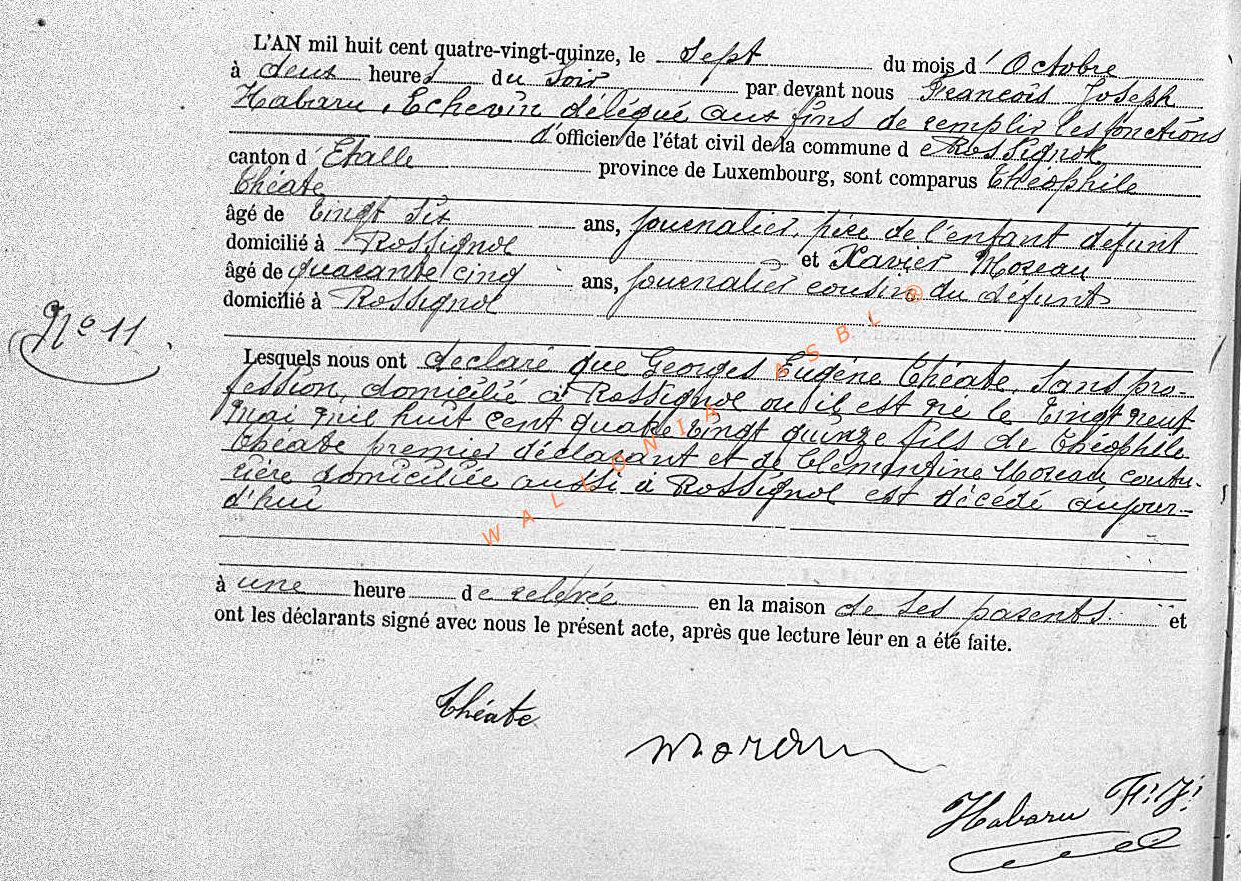 L'AN mil huit cent quatre-vingt-quinze, le Sept du mois d'Octobre
à deux heures du soir par devant nous François Joseph
Habaru, Echevin délégué aux fins de remplir les fonctions
d'officier de l'état civil de la commune de Rossignol
canton d'Etalle province de Luxembourg, sont comparus Théophile
Théate
âgé de vingt six ans, journalier, père de l'enfant défunt
domicilié à Rossignol et Xavier Moreau
âgé de quarante cinq ans, journalier cousin du défunt
domicilié à Rossignol
N° 11
Lesquels nous ont déclaré que Georges Eugène Théate, sans pro-
fession, domicilié à Rossignol où il est né le vingt neuf
mai mil huit cent quatre vingt quinze fils de Théophile
Théate premier déclarant et de Clémentine Moreau coutu-
rière domiciliée aussi à Rossignol est décédé aujour-
d'hui
à une heure de relevée en la maison de ses parents. et
ont les déclarants signé avec nous le présent acte, après que lecture leur en a été faite.
Théate
Moreau
Habaru F. J.
WALLONIA ASBL ®